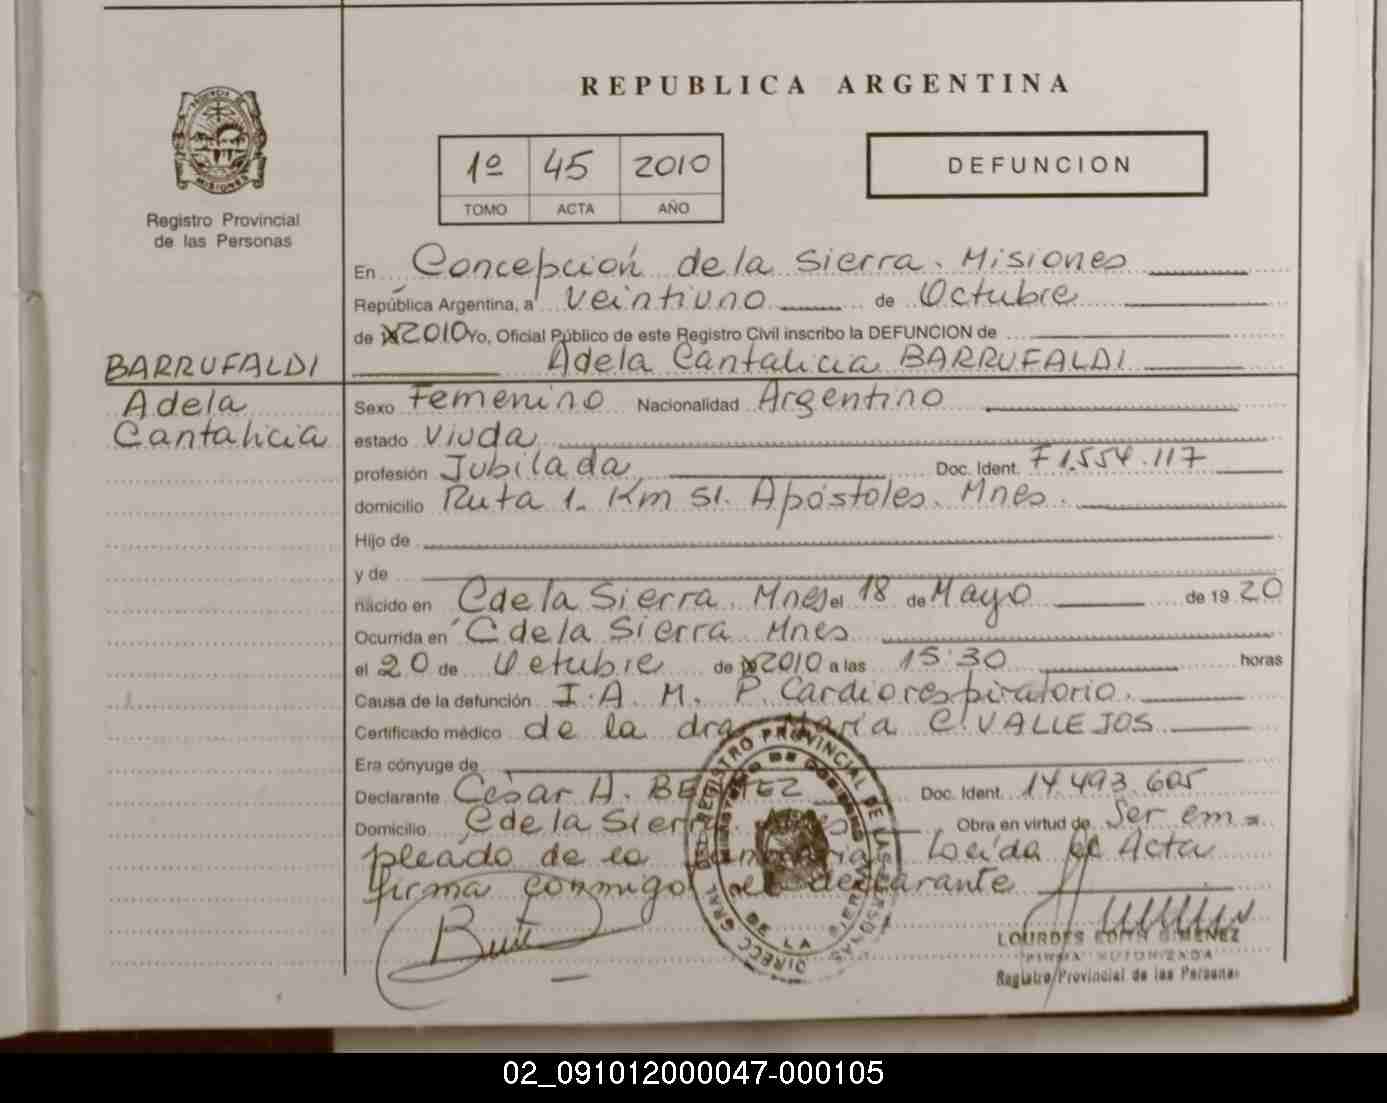 REPUBLICA ARGENTINA
1º 45 2010
TOMO ACTA AÑO
DEFUNCION
PROVINCIA MISIONES
Registro Provincial
de las Personas
En Concepción de la Sierra. Misiones
República Argentina, a Veintiuno de Octubre
de 2010 Yo, Oficial Público de este Registro Civil inscribo la DEFUNCION de
Adela Cantalicia BARRUFALDI
BARRUFALDI
Adela
Cantalicia
Sexo Femenino Nacionalidad Argentino
estado Viuda
profesión Jubilada Doc. Ident. F1.554.117
domicilio Ruta 1. Km 51. Apóstoles. Mnes.
Hijo de
y de
nacido en C de la Sierra. Mnes el 18 de Mayo de 19 20
Ocurrida en C de la Sierra Mnes
el 20 de Octubre de 2010 a las 15:30 horas
Causa de la defunción I.A.M. P. Cardiorespiratorio.
Certificado médico de la dra María C. VALLEJOS
Era cónyuge de
Declarante César A. Doc. Ident. 14.493.605
Domicilio C de la Sierra Obra en virtud de Ser em=
pleado de la Leída el Acta
firma conmigo el declarante
DIRECC GRAL DEL REGISTRO PROVINCIAL DE LAS PERSONAS
DE LA SIERRA
LOURDES EDITH GIMENEZ
FIRMA AUTORIZADA
Registro Provincial de las Personas
02_091012000047-000105